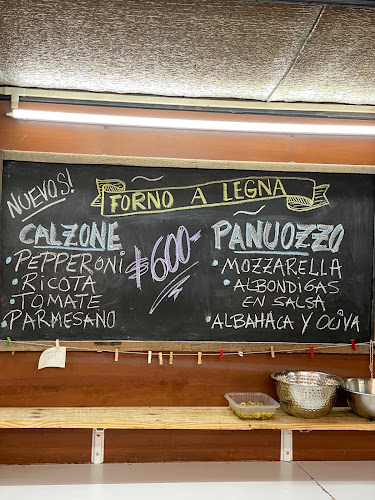 NUEVOS!
FORNO A LEGNA
CALZONE
· PEPPERONI
· RICOTA
· TOMATE
· PARMESANO
$600-
PANUOZZO
· MOZZARELLA
· ALBONDIGAS
EN SALSA
· ALBAHACA Y OLIVA